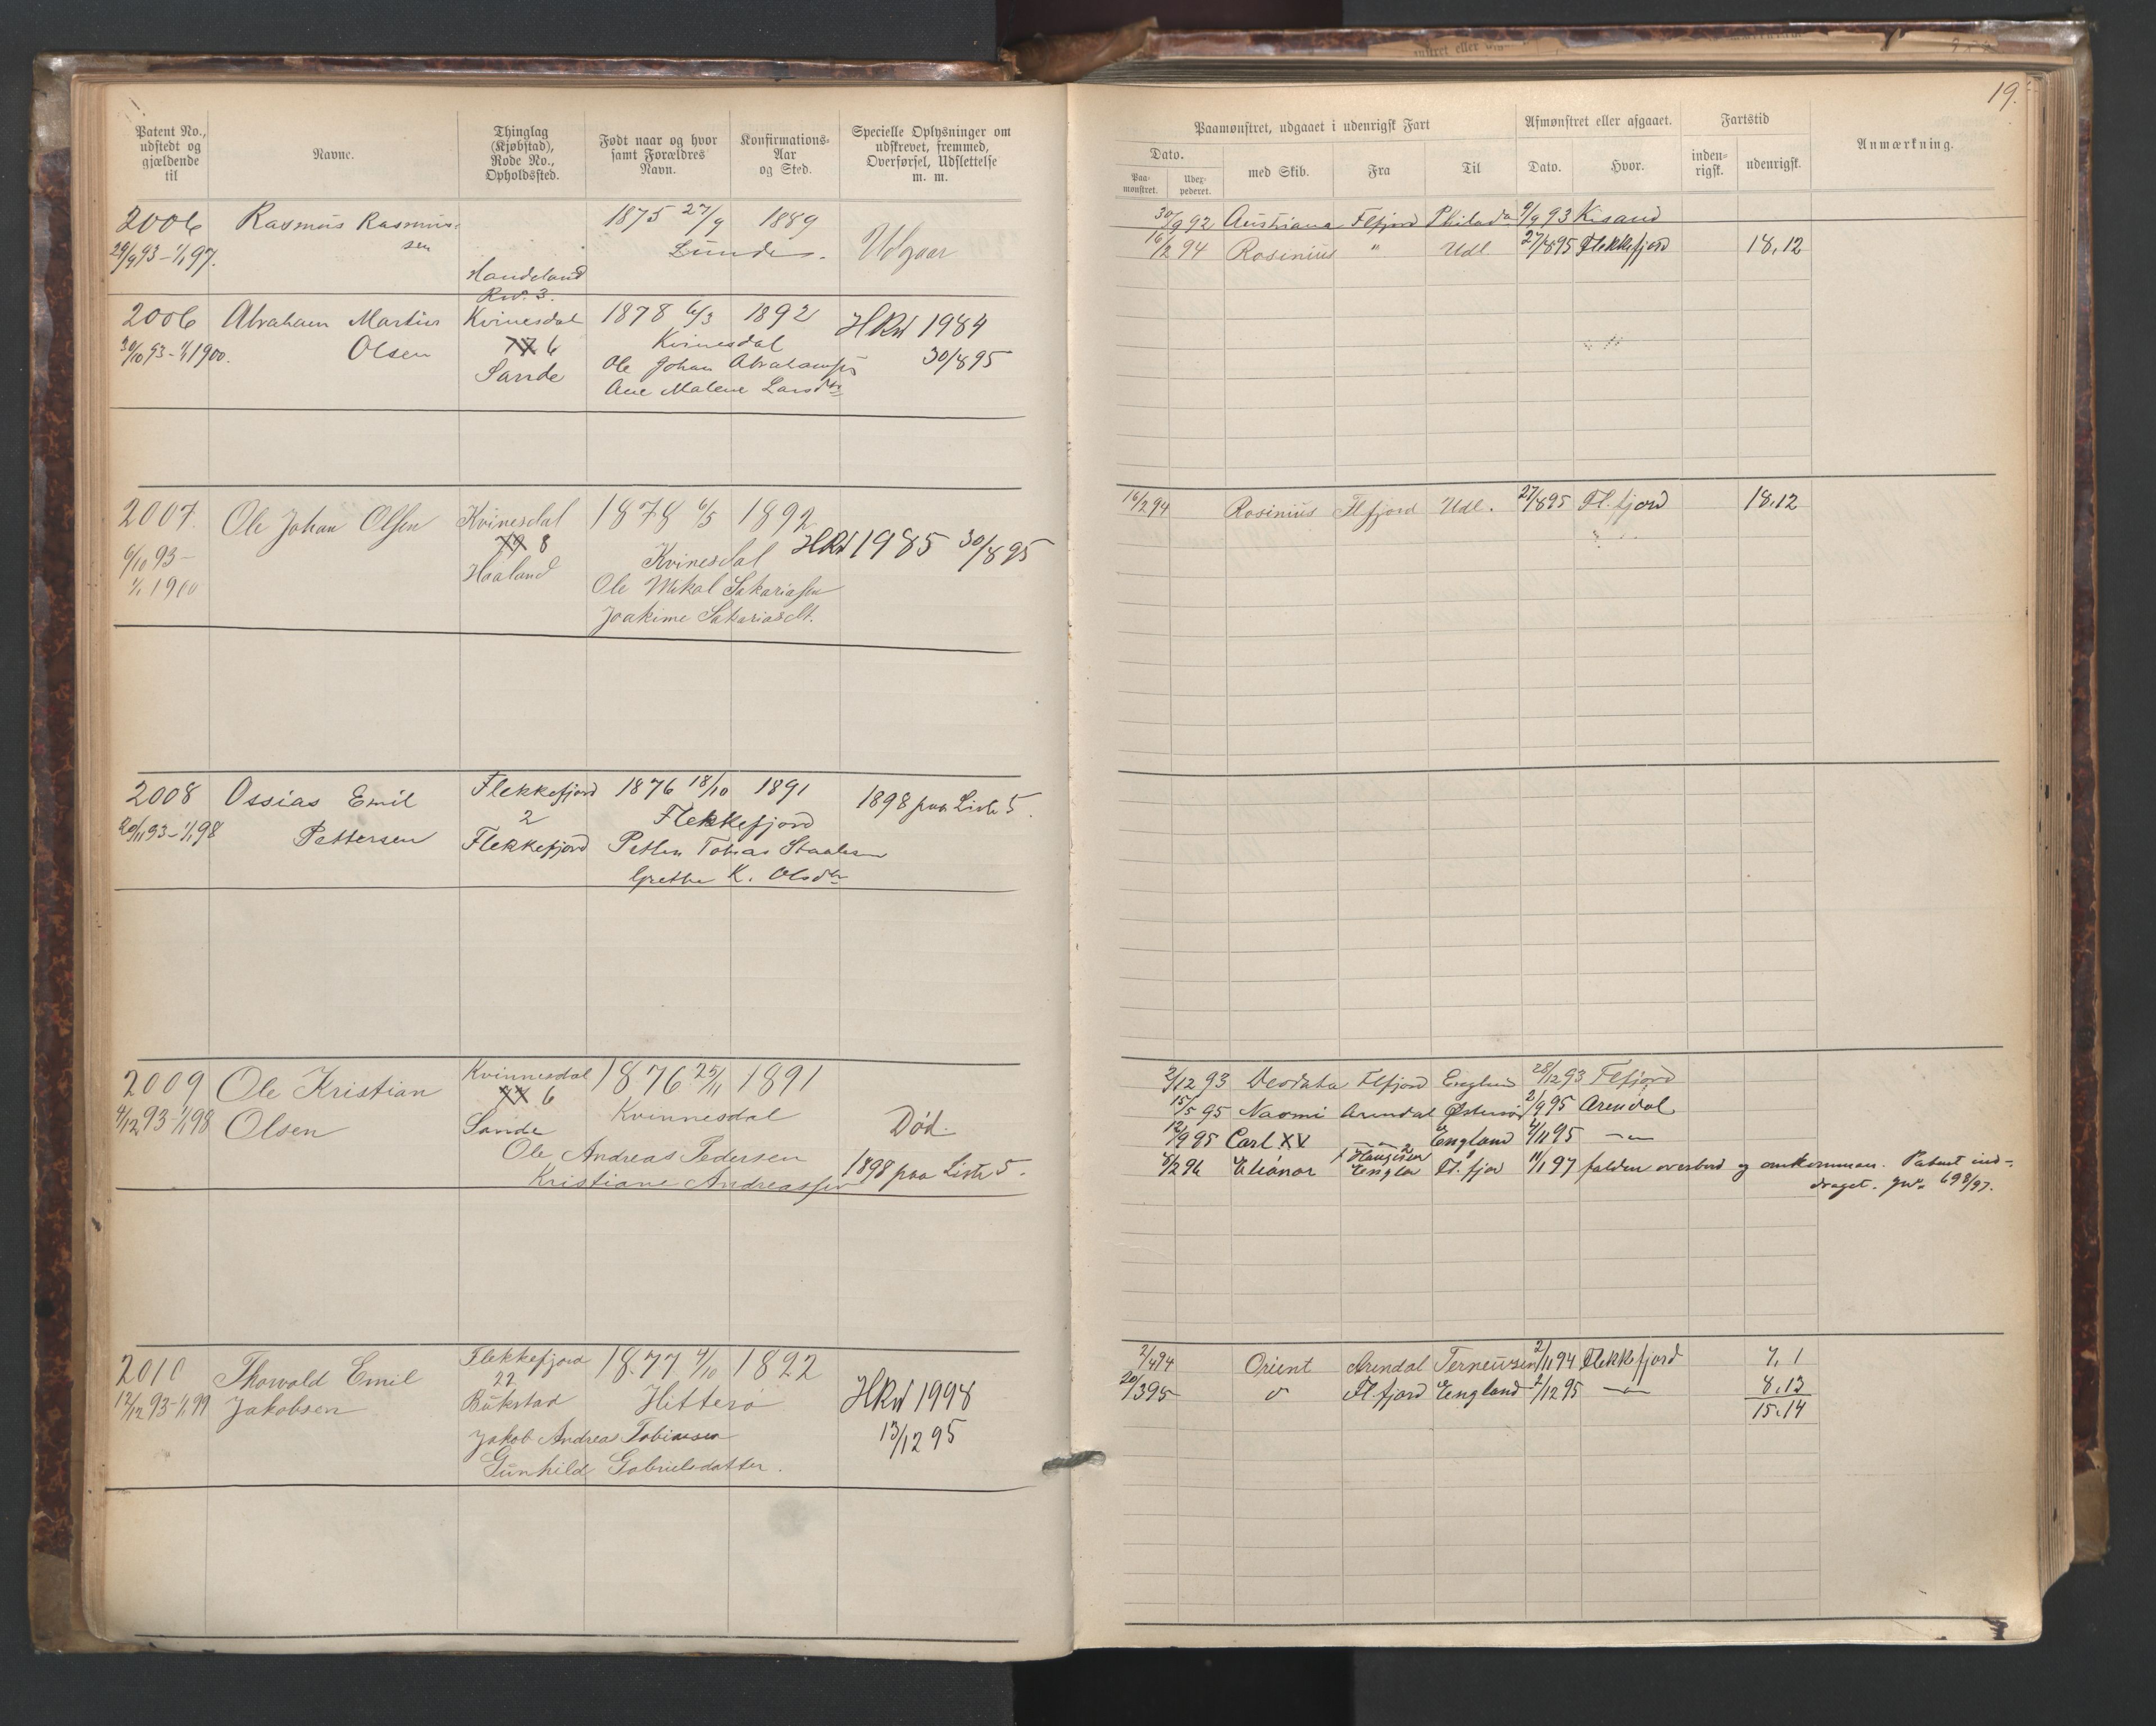 19.
Patent No., udstedt og gjældende til
Navne.
Thinglag (Kjøbstad), Rode No., Opholdssted.
Født naar og hvor samt Forældres Navn.
Konfirmations-Aar og Sted.
Specielle Oplysninger om udskrevet, fremmed, Overførsel, Udslettelse m. m.
Paamønstret, udgaaet i udenrigsk Fart
Afmønstret eller afgaaet.
Fartstid
Anmærkning.
Dato.
med Skib.
Fra
Til
Dato.
Hvor.
inden-rigsk.
udenrigsk.
Paa-monstret.
2006 Rasmus Rasmus- 1875 27/9 1889
29/9 93 - 1/1 97. sen Lunde. Udgaar
Handeland
Rd. 3.
30/9 92 Austriana Flfjord Philada 9/9 93 Krsand
16/2 94 Rosinius " Udl. 27/8 95 Flekkefjord 18,12
2006 Abraham Martius Kvinesdal 1878 6/3 1892 HRd 1984
30/10 93 - 1/1 1900. Olsen 6 Kvinesdal 30/8 95
Sande Ole Johan Abrahamsen
Ane Malene Larsdtr
2007. Ole Johan Olsen Kvinesdal 1878 4/5 1892
6/10 93 - 8 Kvinesdal HRd 1985 30/8 95
1/1 1900 Haaland Ole Mikal Sakariasen
Joakime Sakariasdt.
16/2 94 Rosinius Flfjord Udl. 27/8 95 Fl.fjord 18.12
2008 Ossias Emil Flekkefjord 1876 18/10 1891 1898 paa Liste 5.
20/11 93 - 1/1 98 Pettersen 2 Flekkefjord
Flekkefjord Petter Tobias Staalesen
Grethe K. Olsdtr
2009 Ole Kristian Kvinnesdal 1876 25/11 1891
4/12 93 - 1/1 98 Olsen 6 Kvinnesdal Død.
Sande
Ole Andreas Pedersen
Kristiane Andreassen 1898 paa Liste 5.
2/12 93 Deodata Flfjord England 28/12 93 Flfjord
15/5 95 Naomi Arendal Østersø 2/9 95 Arendal
12/9 95 Carl XV " England 4/11 95 —"—
8/2 96 Elianor England Fl.fjor 11/1 97 falden overbord og omkommen. Patent ind-
draget. 698/97.
2010 Thorvald Emil Flekkefjord 1877 4/10 1892
12/12 93 - 1/1 99 Jakobsen 22 Hitterø HRd 1998
Bukstad 13/12 95
Jakob Andreas Tobiasen
Gunhild Gabrielsdatter.
2/4 94 Orient Arendal Terneuzen 2/11 94 Flekkefjord 7,1
20/3 95 " Fl.fjord England 2/12 95 —"— 8.13
15.14